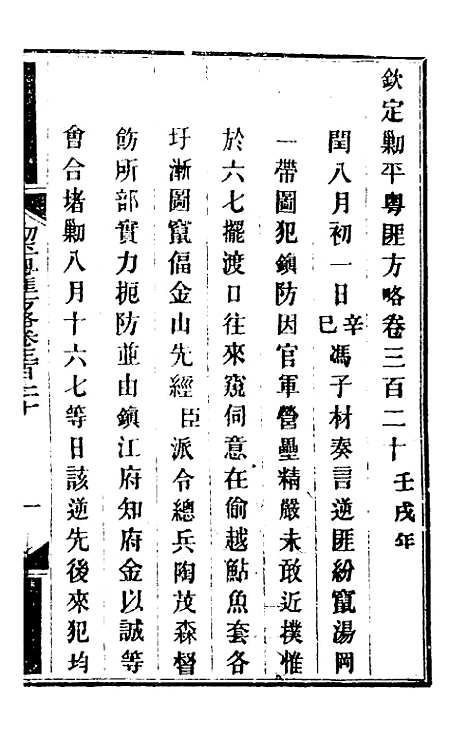 欽定勦平粵匪方略卷三百二十 壬戌年
閏八月初一日辛巳馮子材奏言逆匪紛竄湯岡
一帶圖犯鎮防因官軍營壘精嚴未敢近撲惟
於六七擺渡口往來窺伺意在偷越鮎魚套各
圩漸圖竄偪金山先經臣派令總兵陶茂森督
飭所部實力扼防並由鎮江府知府金以誠等
會合堵勦八月十六七等日該逆先後來犯均
一